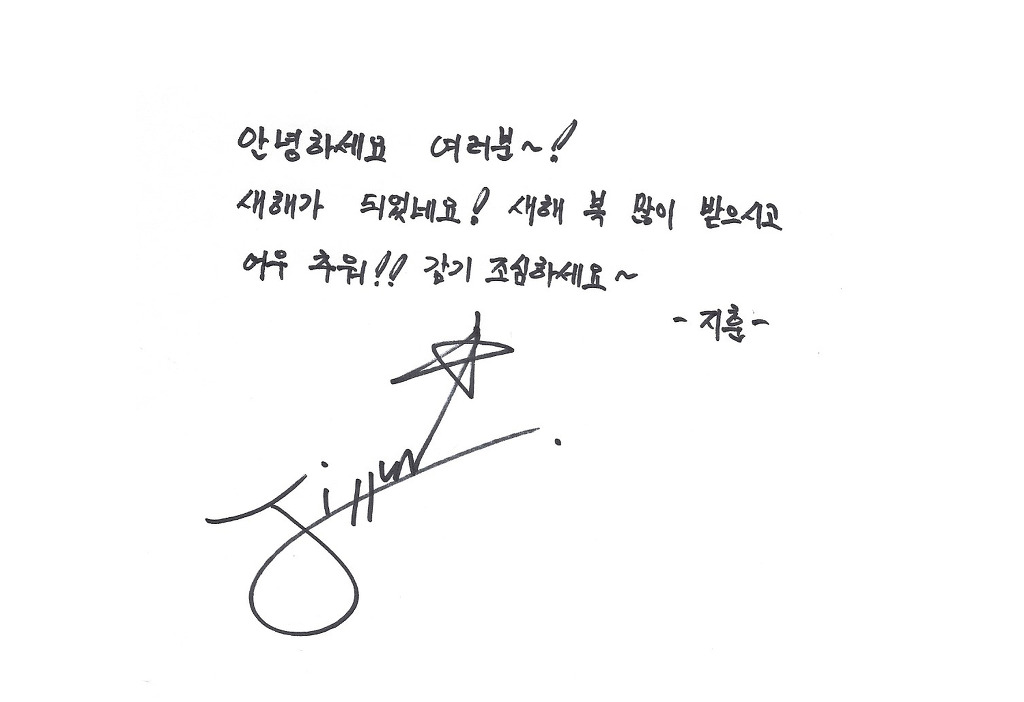 안녕하세요 여러분~!
새해가 되었네요! 새해 복 많이 받으시고
어우 추워!! 감기 조심하세요~
- 지훈 -
Jihun.